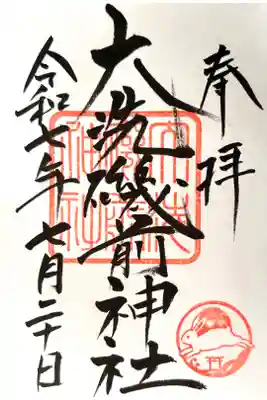 奉拝
大洗磯前神社
令和七年七月二十日